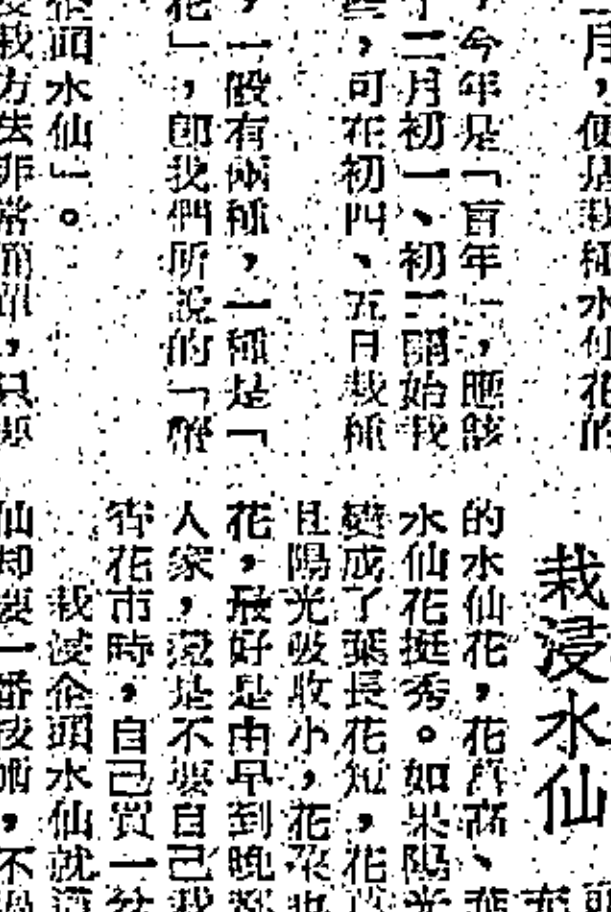 月，便是栽種水仙花的
，今年是「盲年」，應該
十二月初一、初二開始栽
，可在初四、五日栽種
，一般有兩種，一種是「
花」，即我們所說的「雕
企頭水仙」。
浸栽方法非常簡單，只要
栽浸水仙
的水仙花，花
水仙花挺秀。如果陽光
變成了葉長花短，花
且陽光吸收小，花朵也
花，最好是由早到晚
人家，還是不要自己栽
宵花市時，自己買一盆
栽浸企頭水仙就
仙却要一番技術，不過